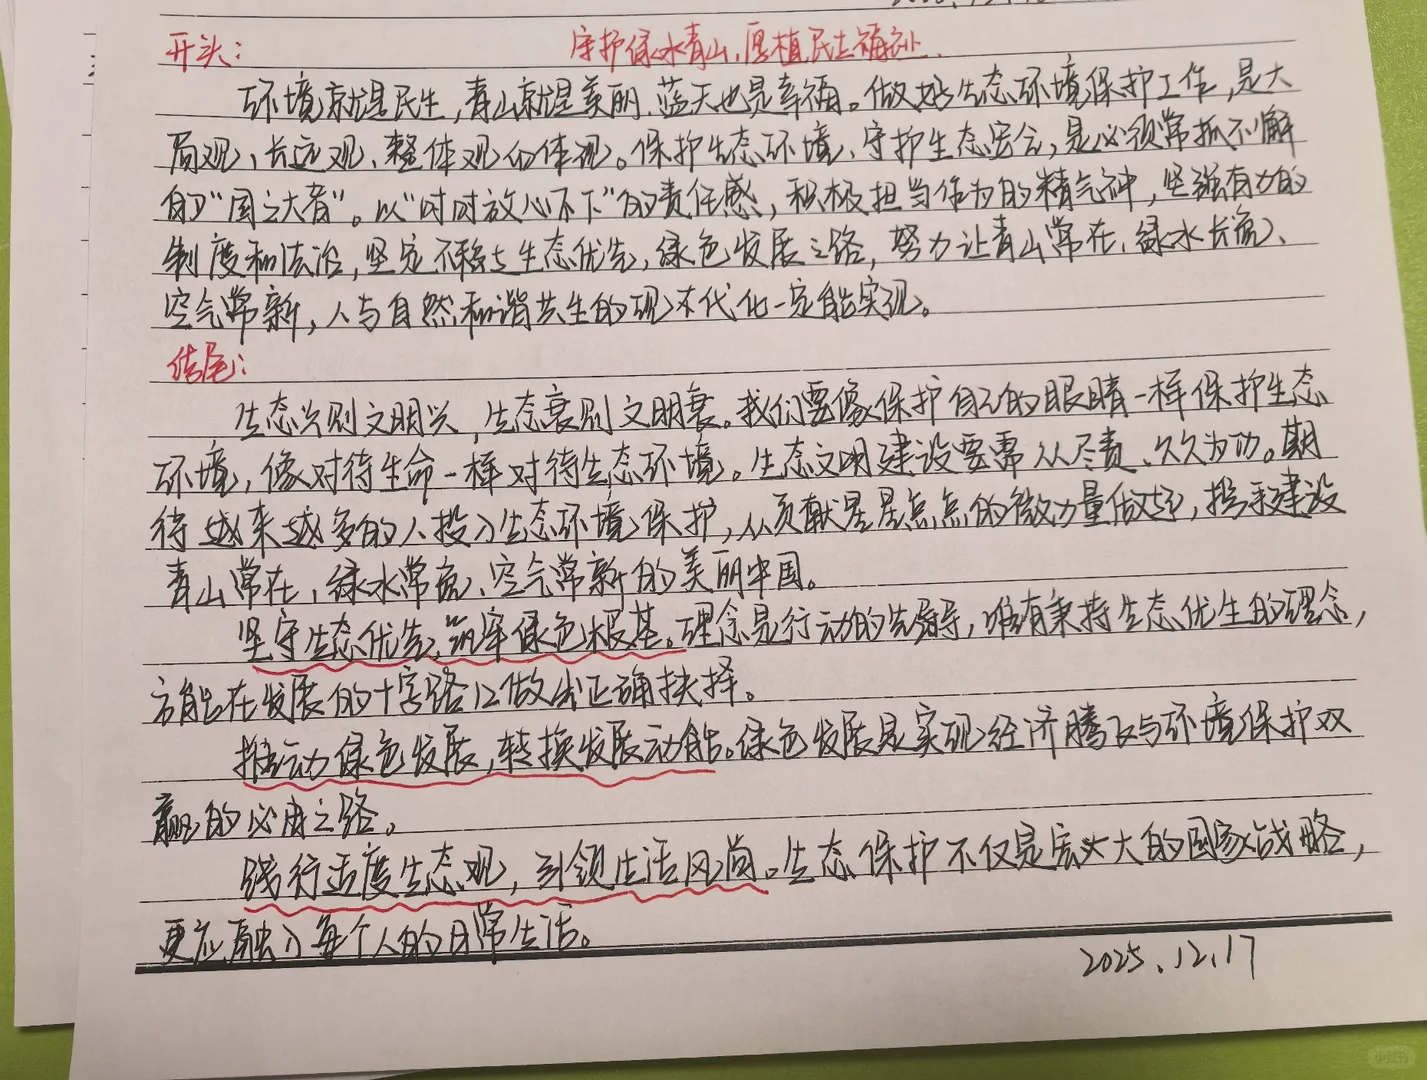 开头：
守护绿水青山，厚植民生福祉.
环境就是民生，青山就是美丽，蓝天也是幸福。做好生态环境保护工作，是大
局观、长远观、整体观的体现。保护生态环境、守护生态安全，是必须常抓不懈
的"国之大者"。以"时时放心不下"的责任感，积极担当作为的精气神，坚强有力的
制度和法治，坚定不移走生态优先，绿色发展之路，努力让青山常在、绿水长流、
空气常新，人与自然和谐共生的现代化一定能实现。
结尾：
生态兴则文明兴，生态衰则文明衰。我们要像保护自己的眼睛一样保护生态
环境，像对待生命一样对待生态环境。生态文明建设要需人人尽责、久久为功。期
待越来越多的人投入生态环境保护，从贡献星星点点的微力量做起，携手建设
青山常在，绿水常流、空气常新的美丽中国。
坚守生态优先，筑牢绿色根基。理念是行动的先导，唯有秉持生态优生的理念，
方能在发展的十字路口做出正确抉择。
推动绿色发展，转换发展动能。绿色发展是实现经济腾飞与环境保护双
赢的必由之路。
践行适度生态观，引领生活风尚。生态保护不仅是宏大的国家战略，
更应融入每个人的日常生活。
2025.12.17